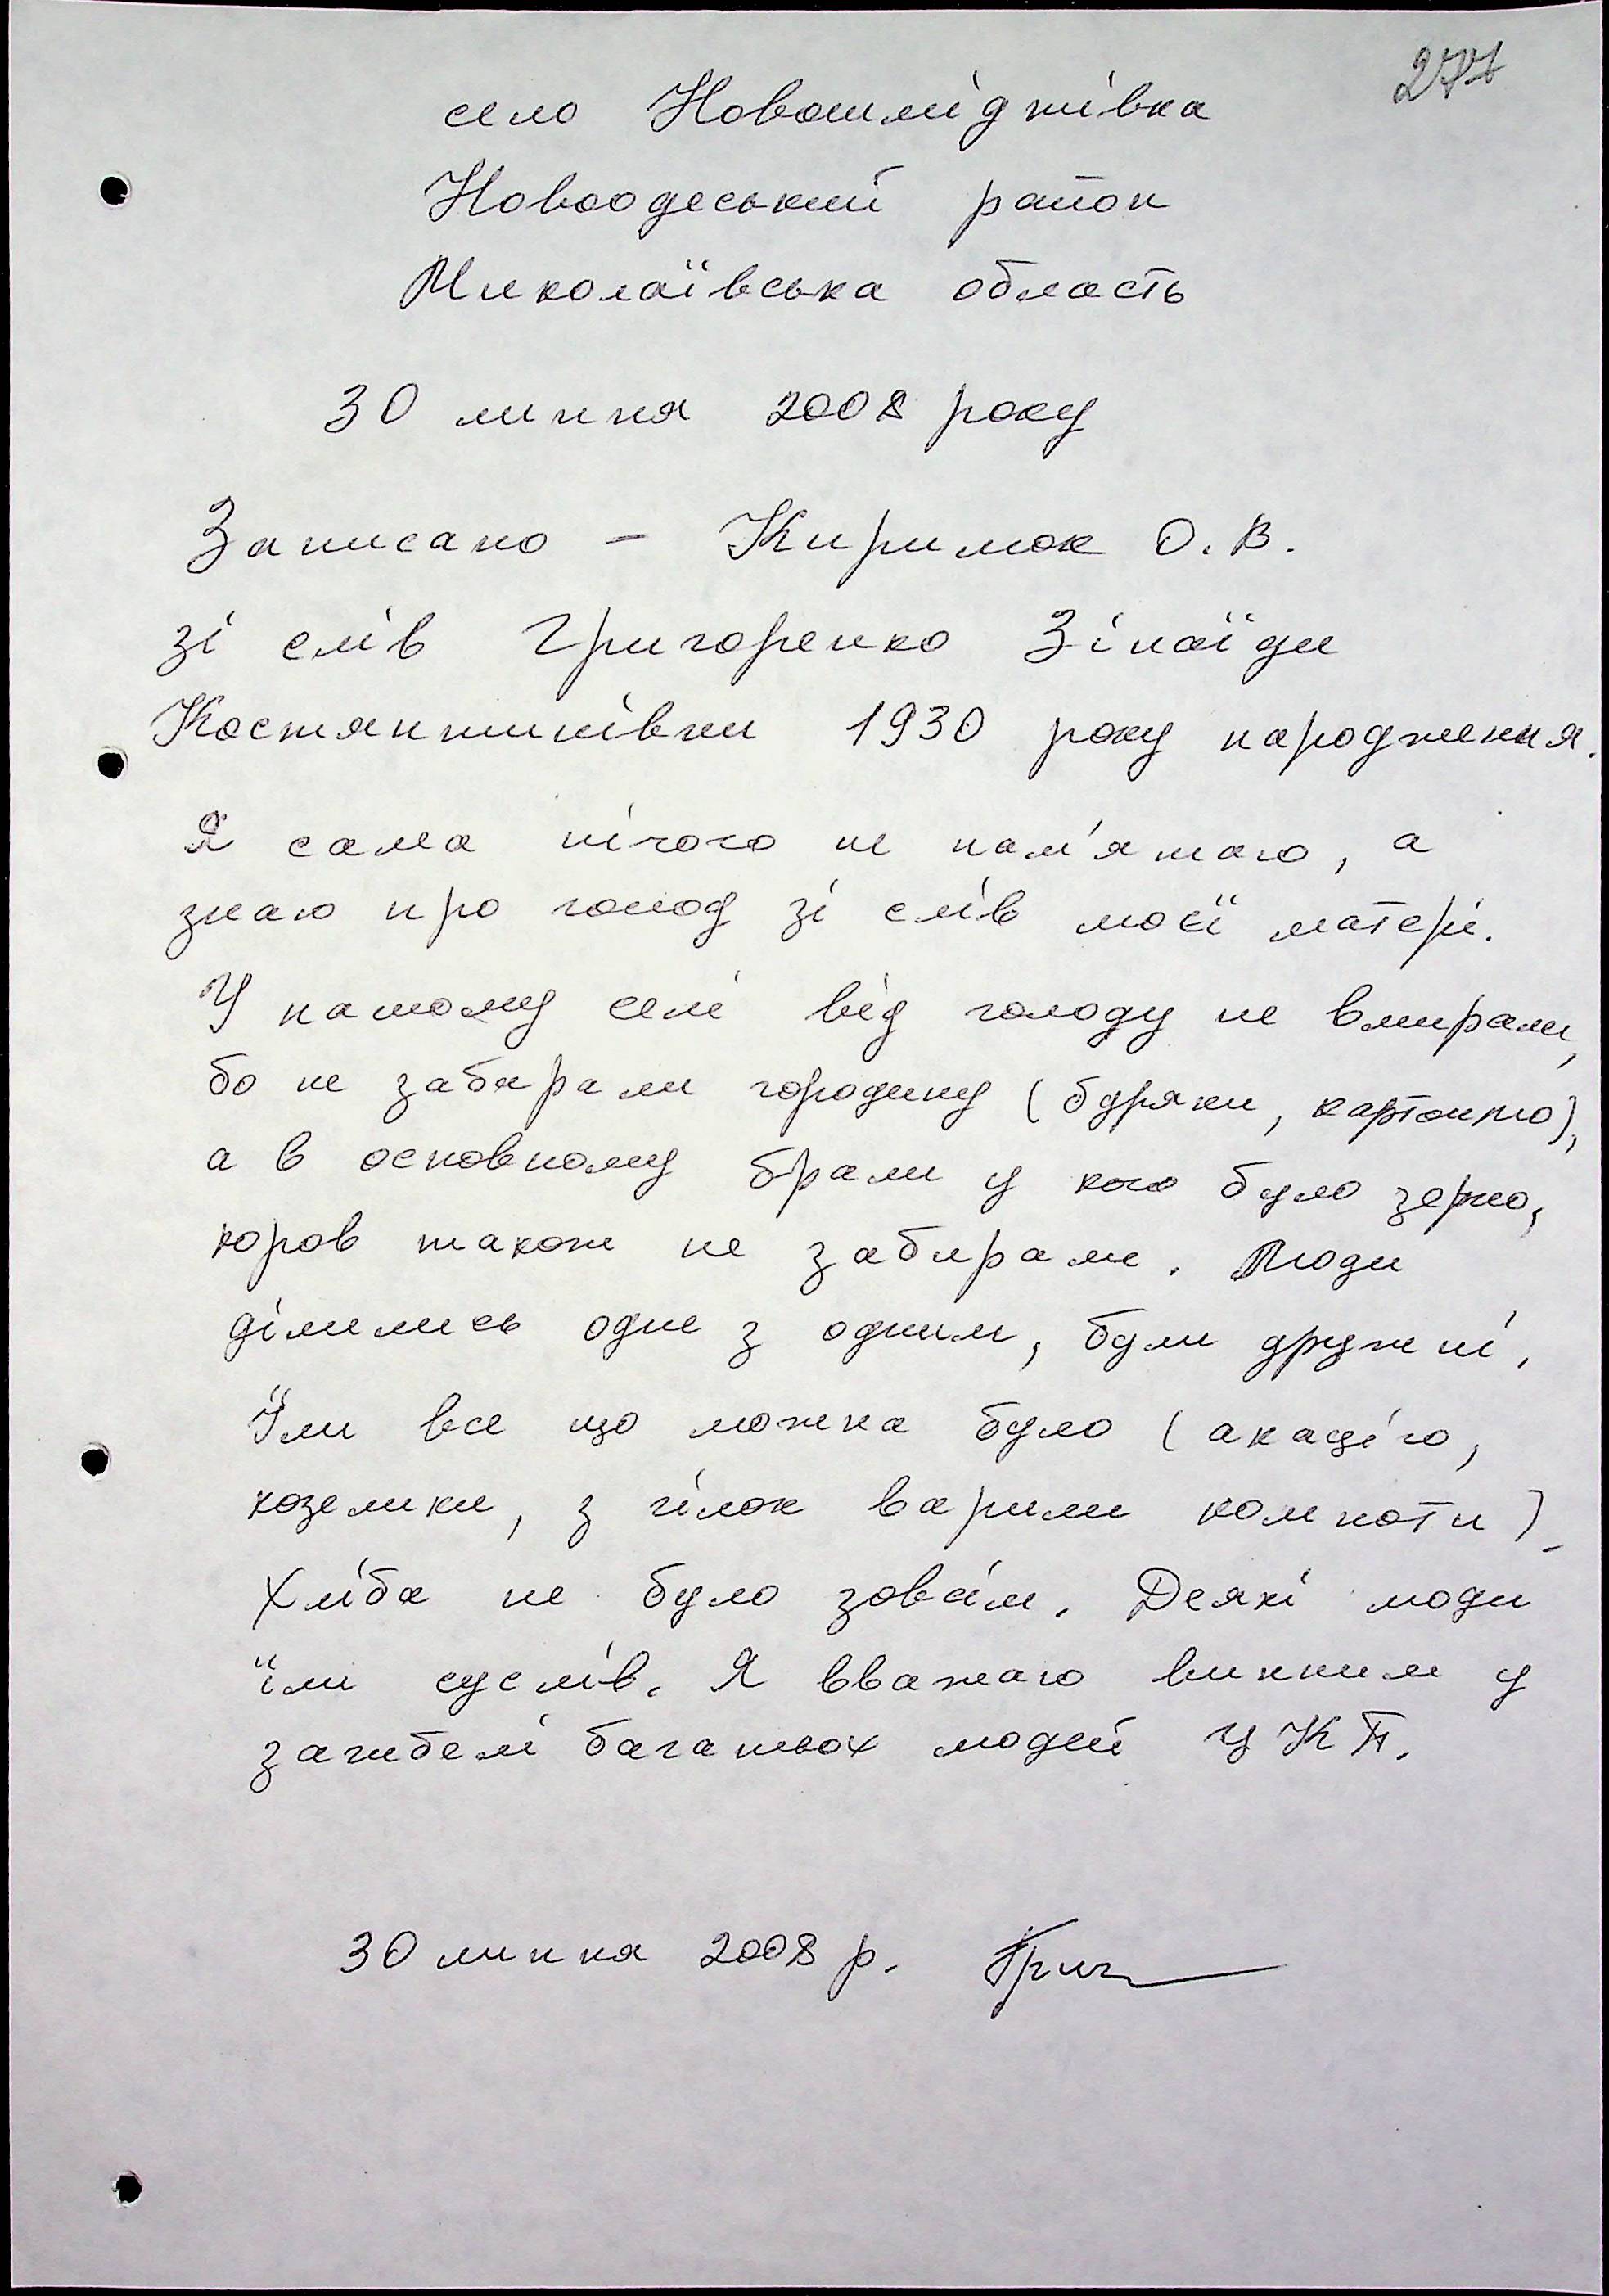 277
село Новошмідтівка
Новоодеський район
Миколаївська область
30 липня 2008 року
Записано – Кирилюк О. В.
зі слів Григоренко Зінаїди
Костянтинівни 1930 року народження.
Я сама нічого не пам'ятаю, а
знаю про голод зі слів моєї матері.
У нашому селі від голоду не вмирали,
бо не забирали городину (буряки, картоплю),
а в основному брали у кого було зерно,
коров також не забирали. Люди
ділились одне з одним, були дружні.
Їли все що можна було (акацію,
козелики, з гілок варили компоти).
Хліба не було зовсім. Деякі люди
їли суслів. Я вважаю винним у
загибелі багатьох людей ЦКП.
30 липня 2008 р. Григ